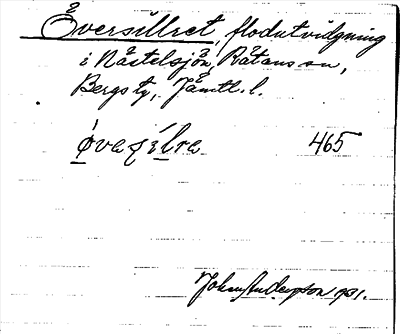 Översillret, flodutvidgning
i Nästelsjön, Rätans sn,
Bergs tg, Jämtl. l.
øvaṣílre 465
John Anderzson 1931.